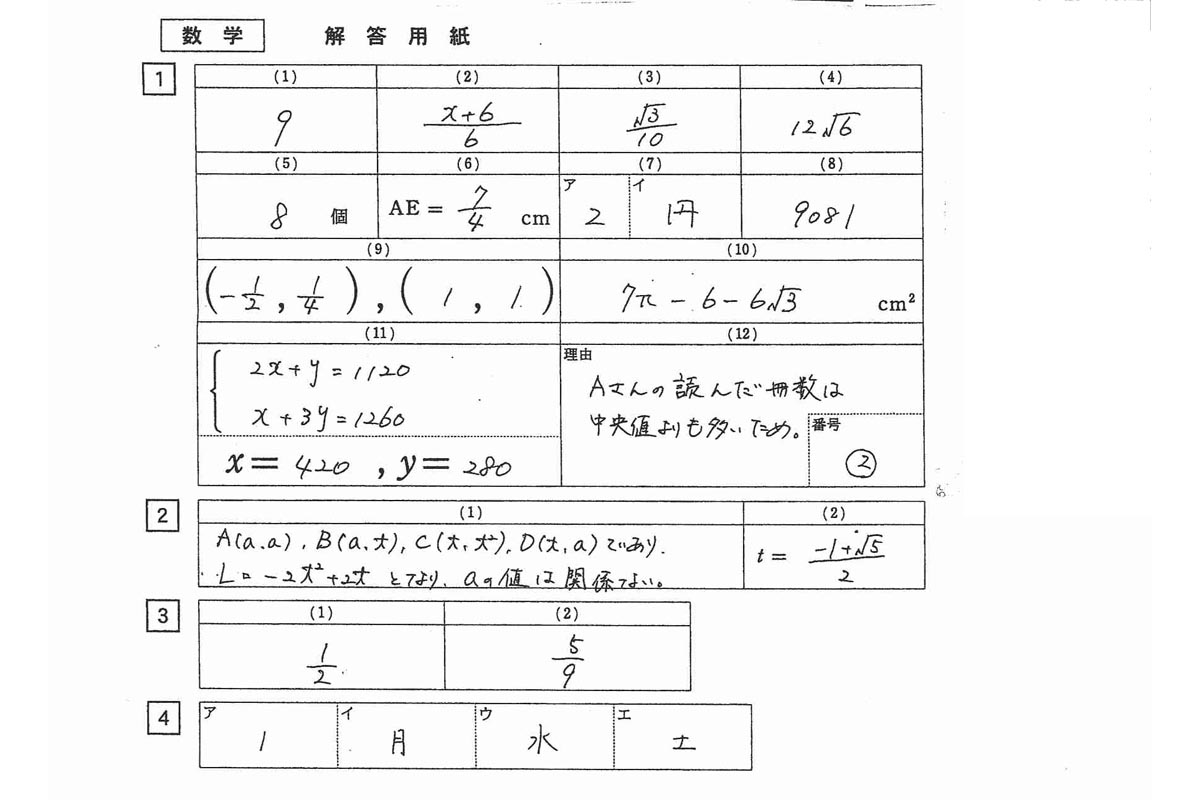 数学 解答用紙
1
(1) (2) (3) (4)
9 (x+6)/6 √3/10 12√6
(5) (6) (7) (8)
8 個 AE = 7/4 cm ア 2 イ 円 9081
(9) (10)
(-1/2, 1/4), (1, 1) 7π - 6 - 6√3 cm²
(11) (12)
2x+y=1120
x+3y=1260
x= 420 , y= 280
理由
Aさんの読んだ冊数は
中央値よりも多いため。
番号
②
2
(1) (2)
A(a.a), B(a.t), C(t.t²), D(t,a)であり.
L=-2t²+2t となり、aの値は関係ない。
t = (-1+√5)/2
3
(1) (2)
1/2 5/9
4
ア 1 イ 月 ウ 水 エ 土